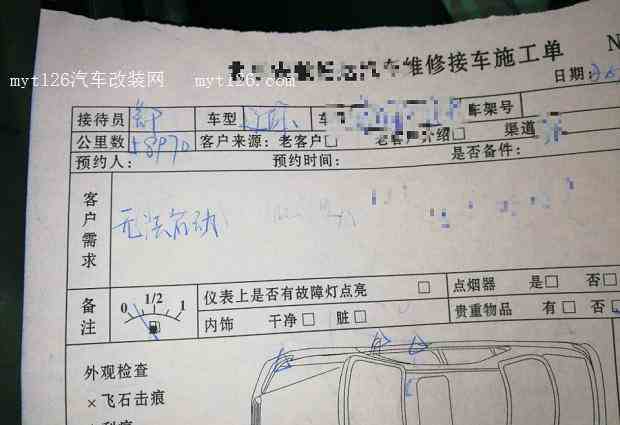 汽车维修接车施工单 N
myt126汽车改装网 myt126.com
日期:
接待员 车型 车 车架号
公里数 58970 客户来源: 老客户□ 老客户介绍□ 渠道
预约人: 预约时间: 是否备件:
客户需求 无法启动
备注 0 1/2 1 仪表上是否有故障灯点亮 □ 点烟器 是□ 否□
内饰 干净□ 脏□ 贵重物品 有□ 否□
外观检查
×飞石击痕